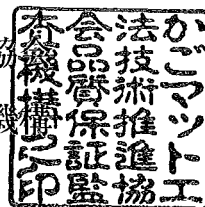 かごマット工
法技術推進協
会品質保証監
査機構之印